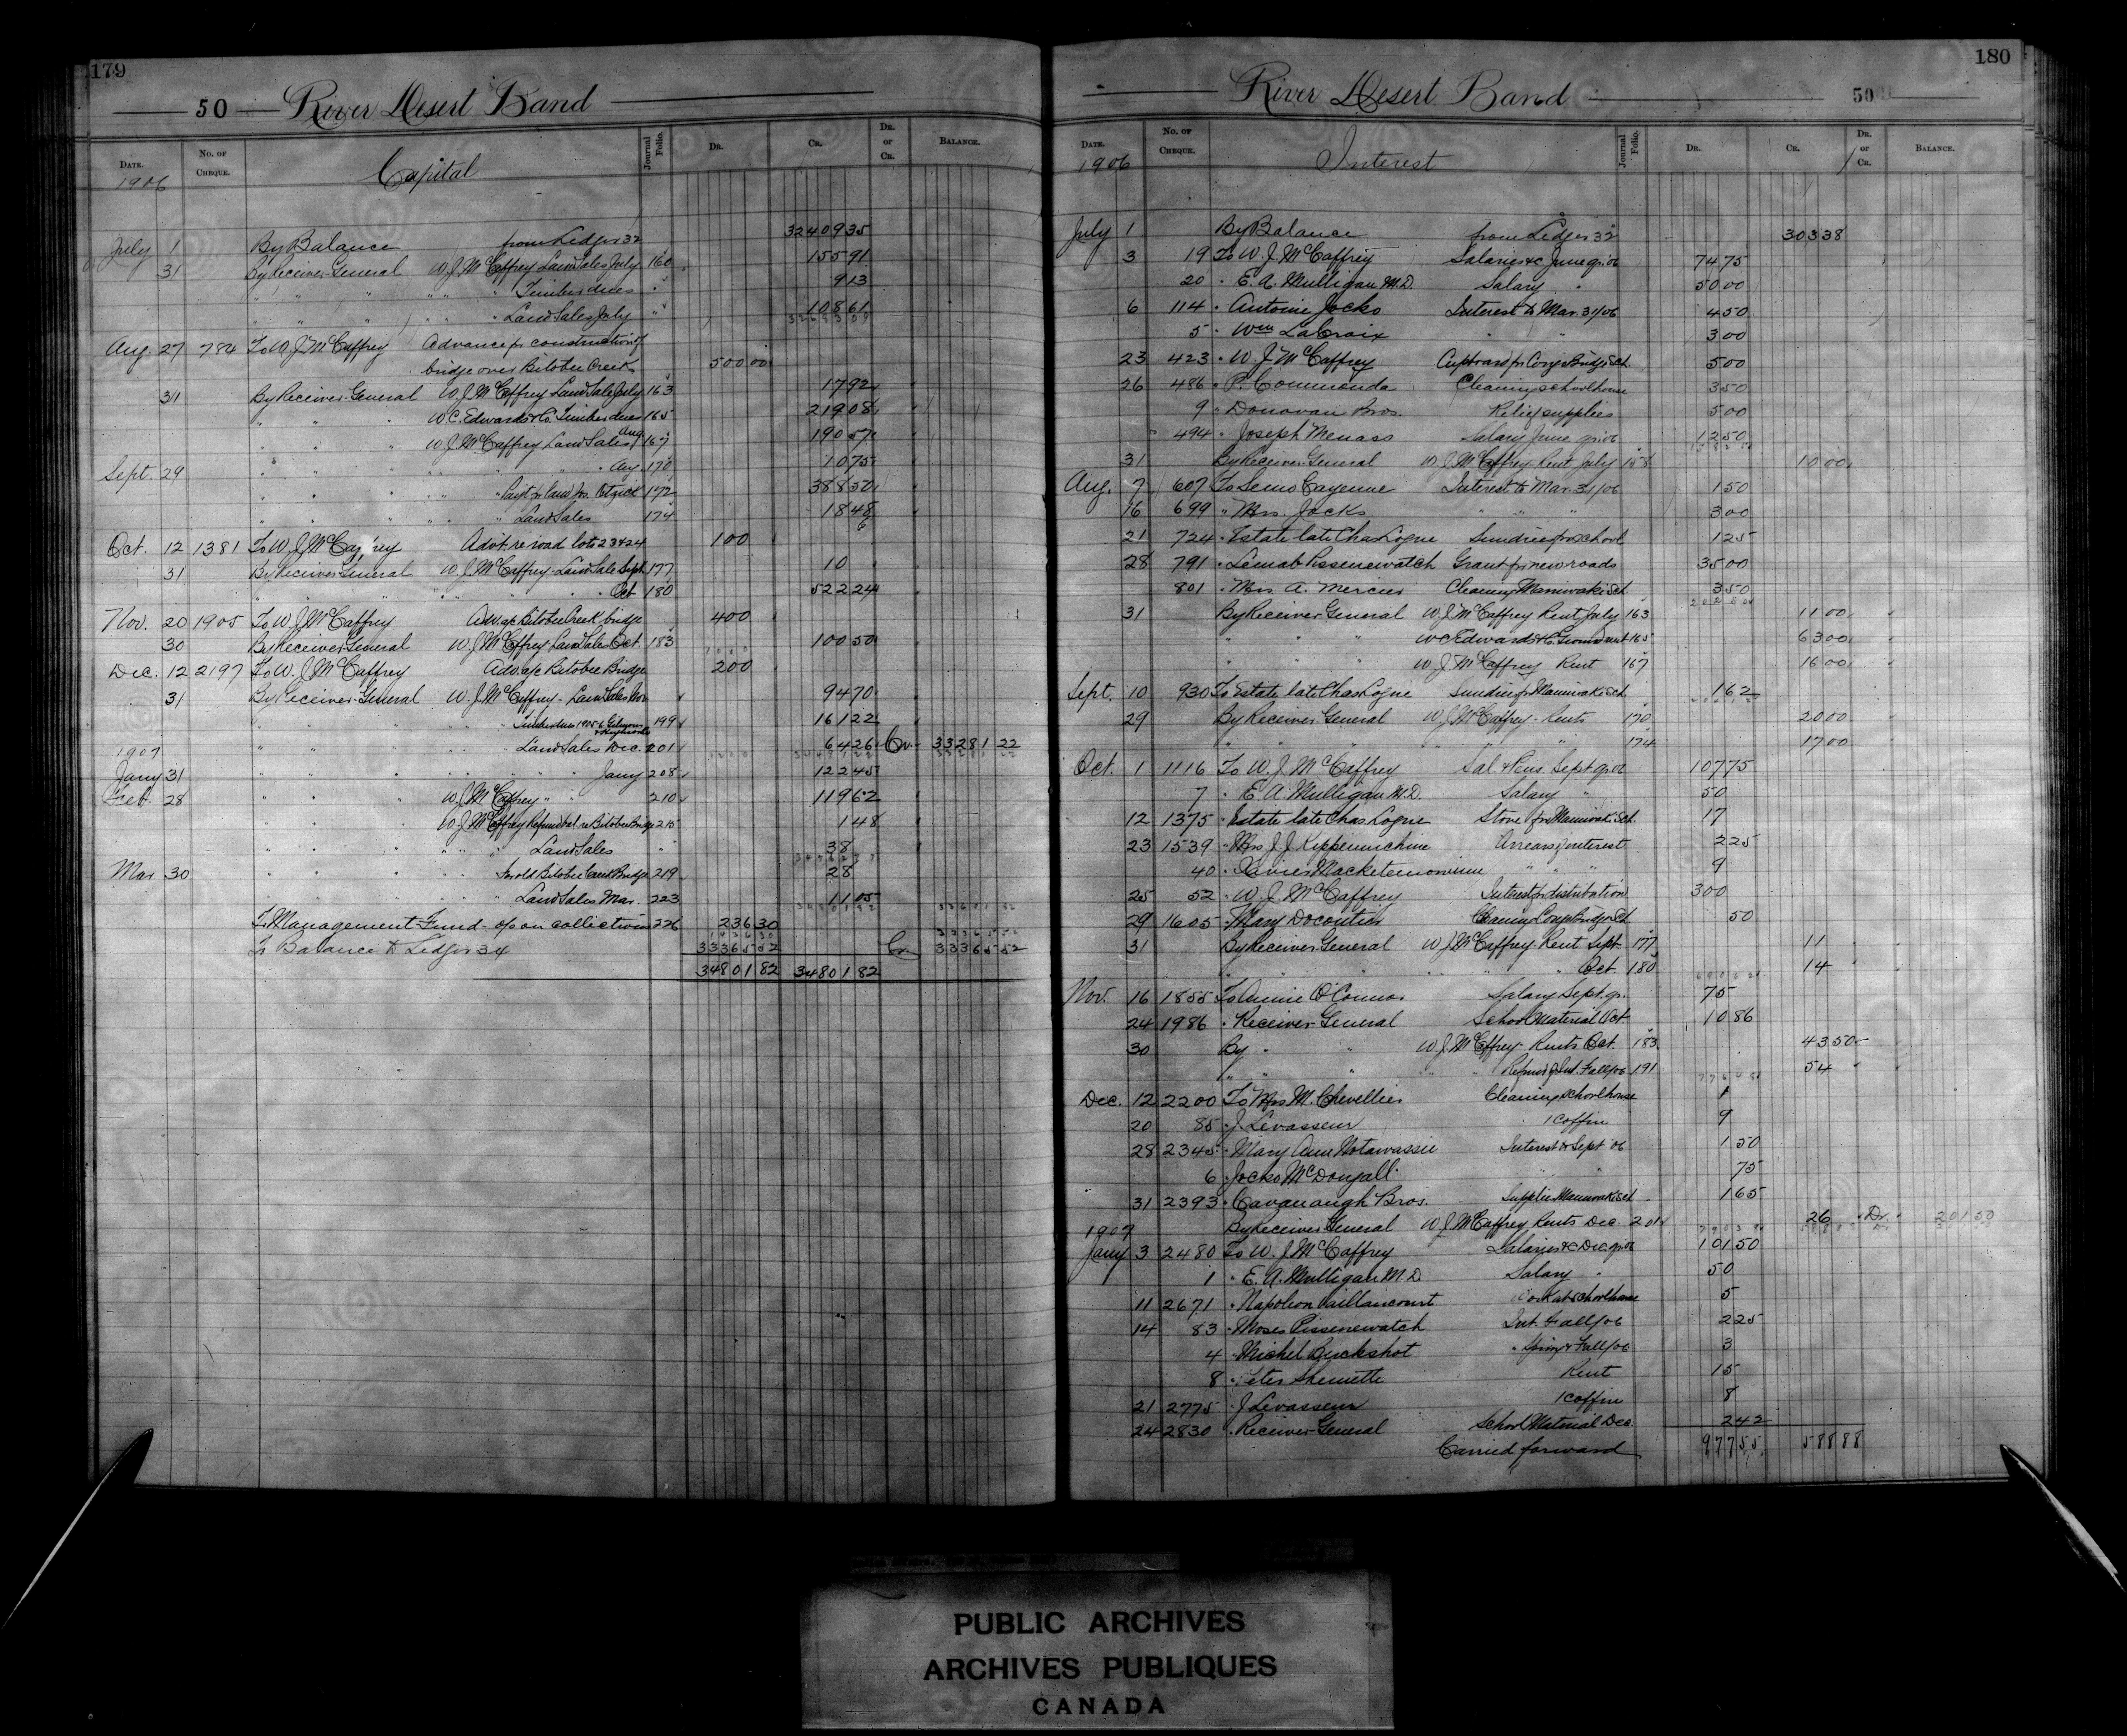 179
50 River Desert Band
Date. No. of Cheque. Capital Journal Folio. Dr. Cr. Dr. or Cr. Balance.
1906
July 1 By Balance from Ledger 32 32409 35
31 By Receiver General W. J. McCaffrey Land Sales July 160 155 91
" " " " " " Timber dues " 9 13
" " " " " " Land Sales July " 108 61
Aug. 27 784 To W. J. McCaffrey Advance for construction of
bridge over Bitobee Creek 500 00
31 By Receiver General W. J. McCaffrey Land Sale July 163 17 92
" " " W. C. Edwards & Co. Timber dues 165 219 08
" " " W. J. McCaffrey Land Sales Aug 167 190 57
Sept. 29 " " " " " " Aug 170 10 75
" " " " " 172 388 50
" " " " " " Land Sales 174 18 48
Oct. 12 1381 To W. J. McCaffrey Advt. re road lots 23 & 24 100
31 By Receiver General W. J. McCaffrey Land Sale Sept. 177 10
" " " " " Oct 180 522 24
Nov. 20 1905 To W. J. McCaffrey Adv. a/c Bitobee Creek bridge 400
30 By Receiver General W. J. McCaffrey Land Sales Oct. 183 100 50
Dec. 12 2197 To W. J. McCaffrey Adv. a/c Bitobee Bridge 200
31 By Receiver General W. J. McCaffrey - Land Sales Nov 94 70
" " " Timber dues 1905-6 199 161 22
" " " " " Land Sales Dec. 201 64 26 Cr. 33281 22
1907
Jany 31 " " " " " " Jany 208 122 45
Feb. 28 " " " W. J. McCaffrey " " 210 119 62
W. J. McCaffrey Refund bal. re Bitobee Bridge 215 1 48
" " " " " " Land Sales " 38
Mar 30 " " " " " Bitobee Creek Bridge 219 28
" " " " " " Land Sales Mar. 223 11 05
To Management Fund - % on collections 226 236 30
To Balance to Ledger 34 33365 52 Cr. 33365 52
34801 82 34801 82
180
River Desert Band 50
Date. No. of Cheque. Interest Journal Folio. Dr. Cr. Dr. or Cr. Balance.
1906
July 1 By Balance from Ledger 32 303 38
3 19 To W. J. McCaffrey Salaries &c June qr. 06 74 75
20 " E. A. Mulligan M.D. Salary " 50 00
6 114 " Antoine Jocko Interest to Mar. 31/06 4 50
5 " Wm LaCroix " " 3 00
23 423 " W. J. McCaffrey Cupboard for Congo Bridge Sch. 5 00
26 486 " P. Commanda Cleaning schoolhouse 3 50
9 " Donovan Bros. Relief supplies 5 00
" 494 " Joseph Menass Salary June qr. 06 12 50
31 By Receiver General W. J. McCaffrey Rent July 158 10 00
Aug. 7 607 To Semo Cayenne Interest to Mar. 31/06 1 50
16 699 " Mrs. Jocko " " " 3 00
21 724 " Estate late Chas Logue Sundries for school 1 25
28 791 " Lemab Pissenewatch Grant for new roads 35 00
801 " Mrs A. Mercier Cleaning Maniwaki Sch. 3 50
31 By Receiver General W. J. McCaffrey Rent July 163 11 00
" " " W C Edwards & Co Ground rent 165 63 00
" " " W. J. McCaffrey Rent 167 16 00
Sept. 10 930 To Estate late Chas Logue Sundries for Maniwaki Sch. 1 62
29 By Receiver General W. J. McCaffrey - Rents 170 20 00
" " " " " 174 17 00
Oct. 1 1116 To W. J. McCaffrey Sal. & Pens. Sept qr. 06 107 75
7 " E. A. Mulligan M.D. Salary " 50
12 1375 " Estate late Chas Logue Stove for Maniwaki Sch. 17
23 1539 " Mrs J. J. Arrears of interest 2 25
40 " Xavier " " 9
25 52 " W. J. McCaffrey Interest for distribution 300
29 1605 " Mary Decontie Cleaning Congo Bridge Sch 50
31 By Receiver General W J McCaffrey Rent Sept. 177 11
" " " " " Oct. 180 14
Nov. 16 1855 To Annie O'Connor Salary Sept. qr. 75
24 1986 " Receiver General School Material Oct 10 86
30 By " " W. J. McCaffrey - Rents Oct. 183 43 50
" " " " " Refund of Int. Fall/06 191 54
Dec. 12 2200 To Mrs M. Chevellier Cleaning schoolhouse 1
20 85 " J. Levasseur 1 coffin 9
28 2345 " Mary Ann Notawassie Interest to Sept 06 1 50
6 " Jocko McDougall " " 75
31 2393 " Cavanaugh Bros. Supplies Maniwaki Sch 1 65
By Receiver General W. J. McCaffrey Rents Dec. 201 26 Dr. 201 50
1907
Jany 3 2480 To W. J. McCaffrey Salaries &c Dec. qr. 06 101 50
1 " E. A. Mulligan M.D. Salary " 50
11 2671 " Napoleon Vaillancourt Work at schoolhouse 5
14 83 " Moses Pissenewatch Int. Fall/06 2 25
4 " Michel Buckshot " Spring & Fall/06 3
8 " Peter Rent 15
21 2775 " J. Levasseur 1 coffin 8
24 2830 " Receiver General School Material Dec. 2 42
Carried forward 977 55 588 88
PUBLIC ARCHIVES
ARCHIVES PUBLIQUES
CANADA